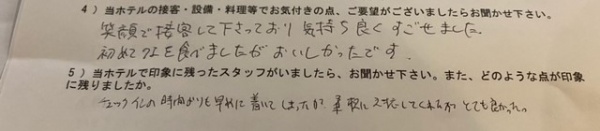 4）当ホテルの接客・設備・料理等でお気付きの点、ご要望がございましたらお聞かせ下さい。
笑顔で接客して下さっており気持ち良くすごせました。
初めてクエを食べましたがおいしかったです。
5）当ホテルで印象に残ったスタッフがいましたら、お聞かせ下さい。また、どのような点が印象
に残りましたか。
チェックインの時間よりも早めに着いてしまったが、柔軟に対応してくれた とても良かった。